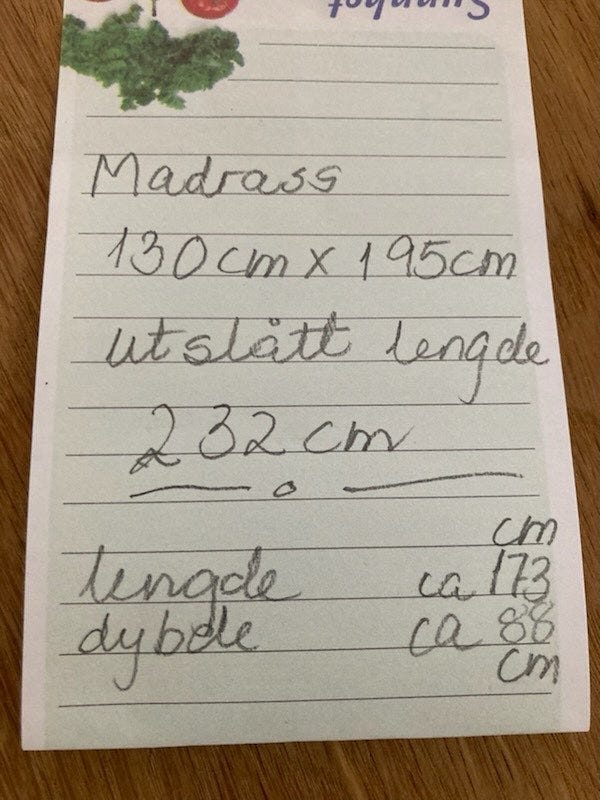 Madrass
130cm x 195cm
utslått lengde
232 cm
cm
lengde ca 173
dybde ca 88
cm